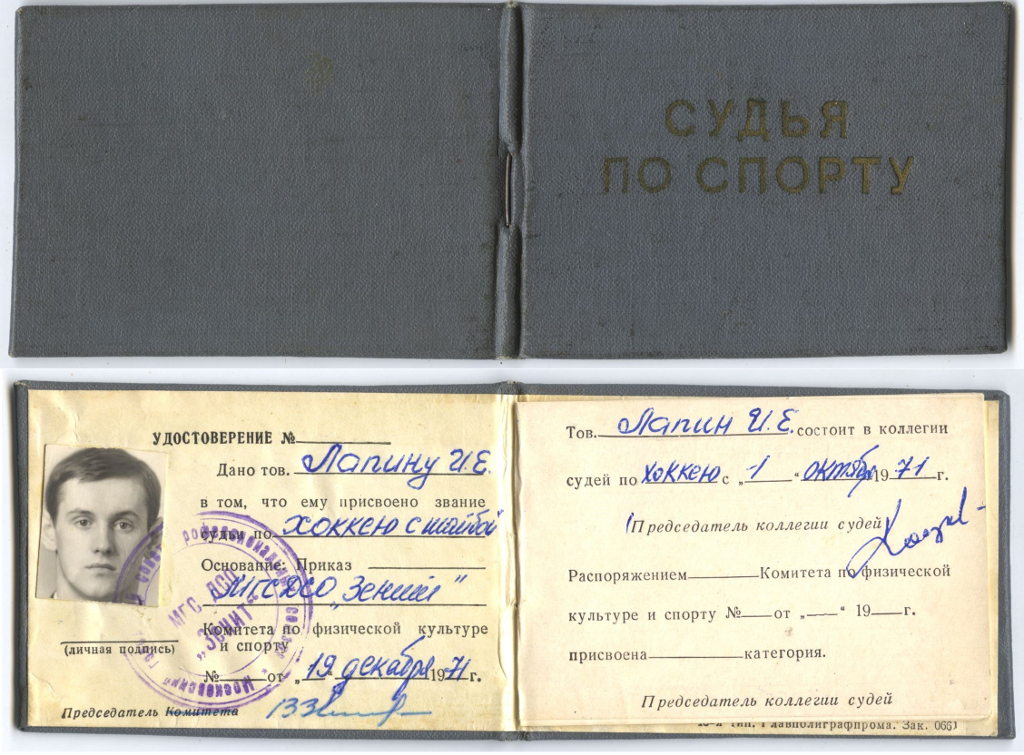 СУДЬЯ
ПО СПОРТУ
УДОСТОВЕРЕНИЕ №
Дано тов. Лапину И.Е.
в том, что ему присвоено звание
судьи по хоккею с шайбой
Основание: Приказ
МГС ДСО „Зенит"
Комитета по физической культуре
и спорту
№ от „19 декабря 1971 г.
(личная подпись)
Председатель Комитета
МГС ДСО
„ЗЕНИТ"
Московский
Тов. Лапин И.Е. состоит в коллегии
судей по хоккею с „1" октября 1971 г.
Председатель коллегии судей
Распоряжением Комитета по физической
культуре и спорту № от „ " 19 г.
присвоена категория.
Председатель коллегии судей
тип. Главполиграфпрома. Зак. 0661